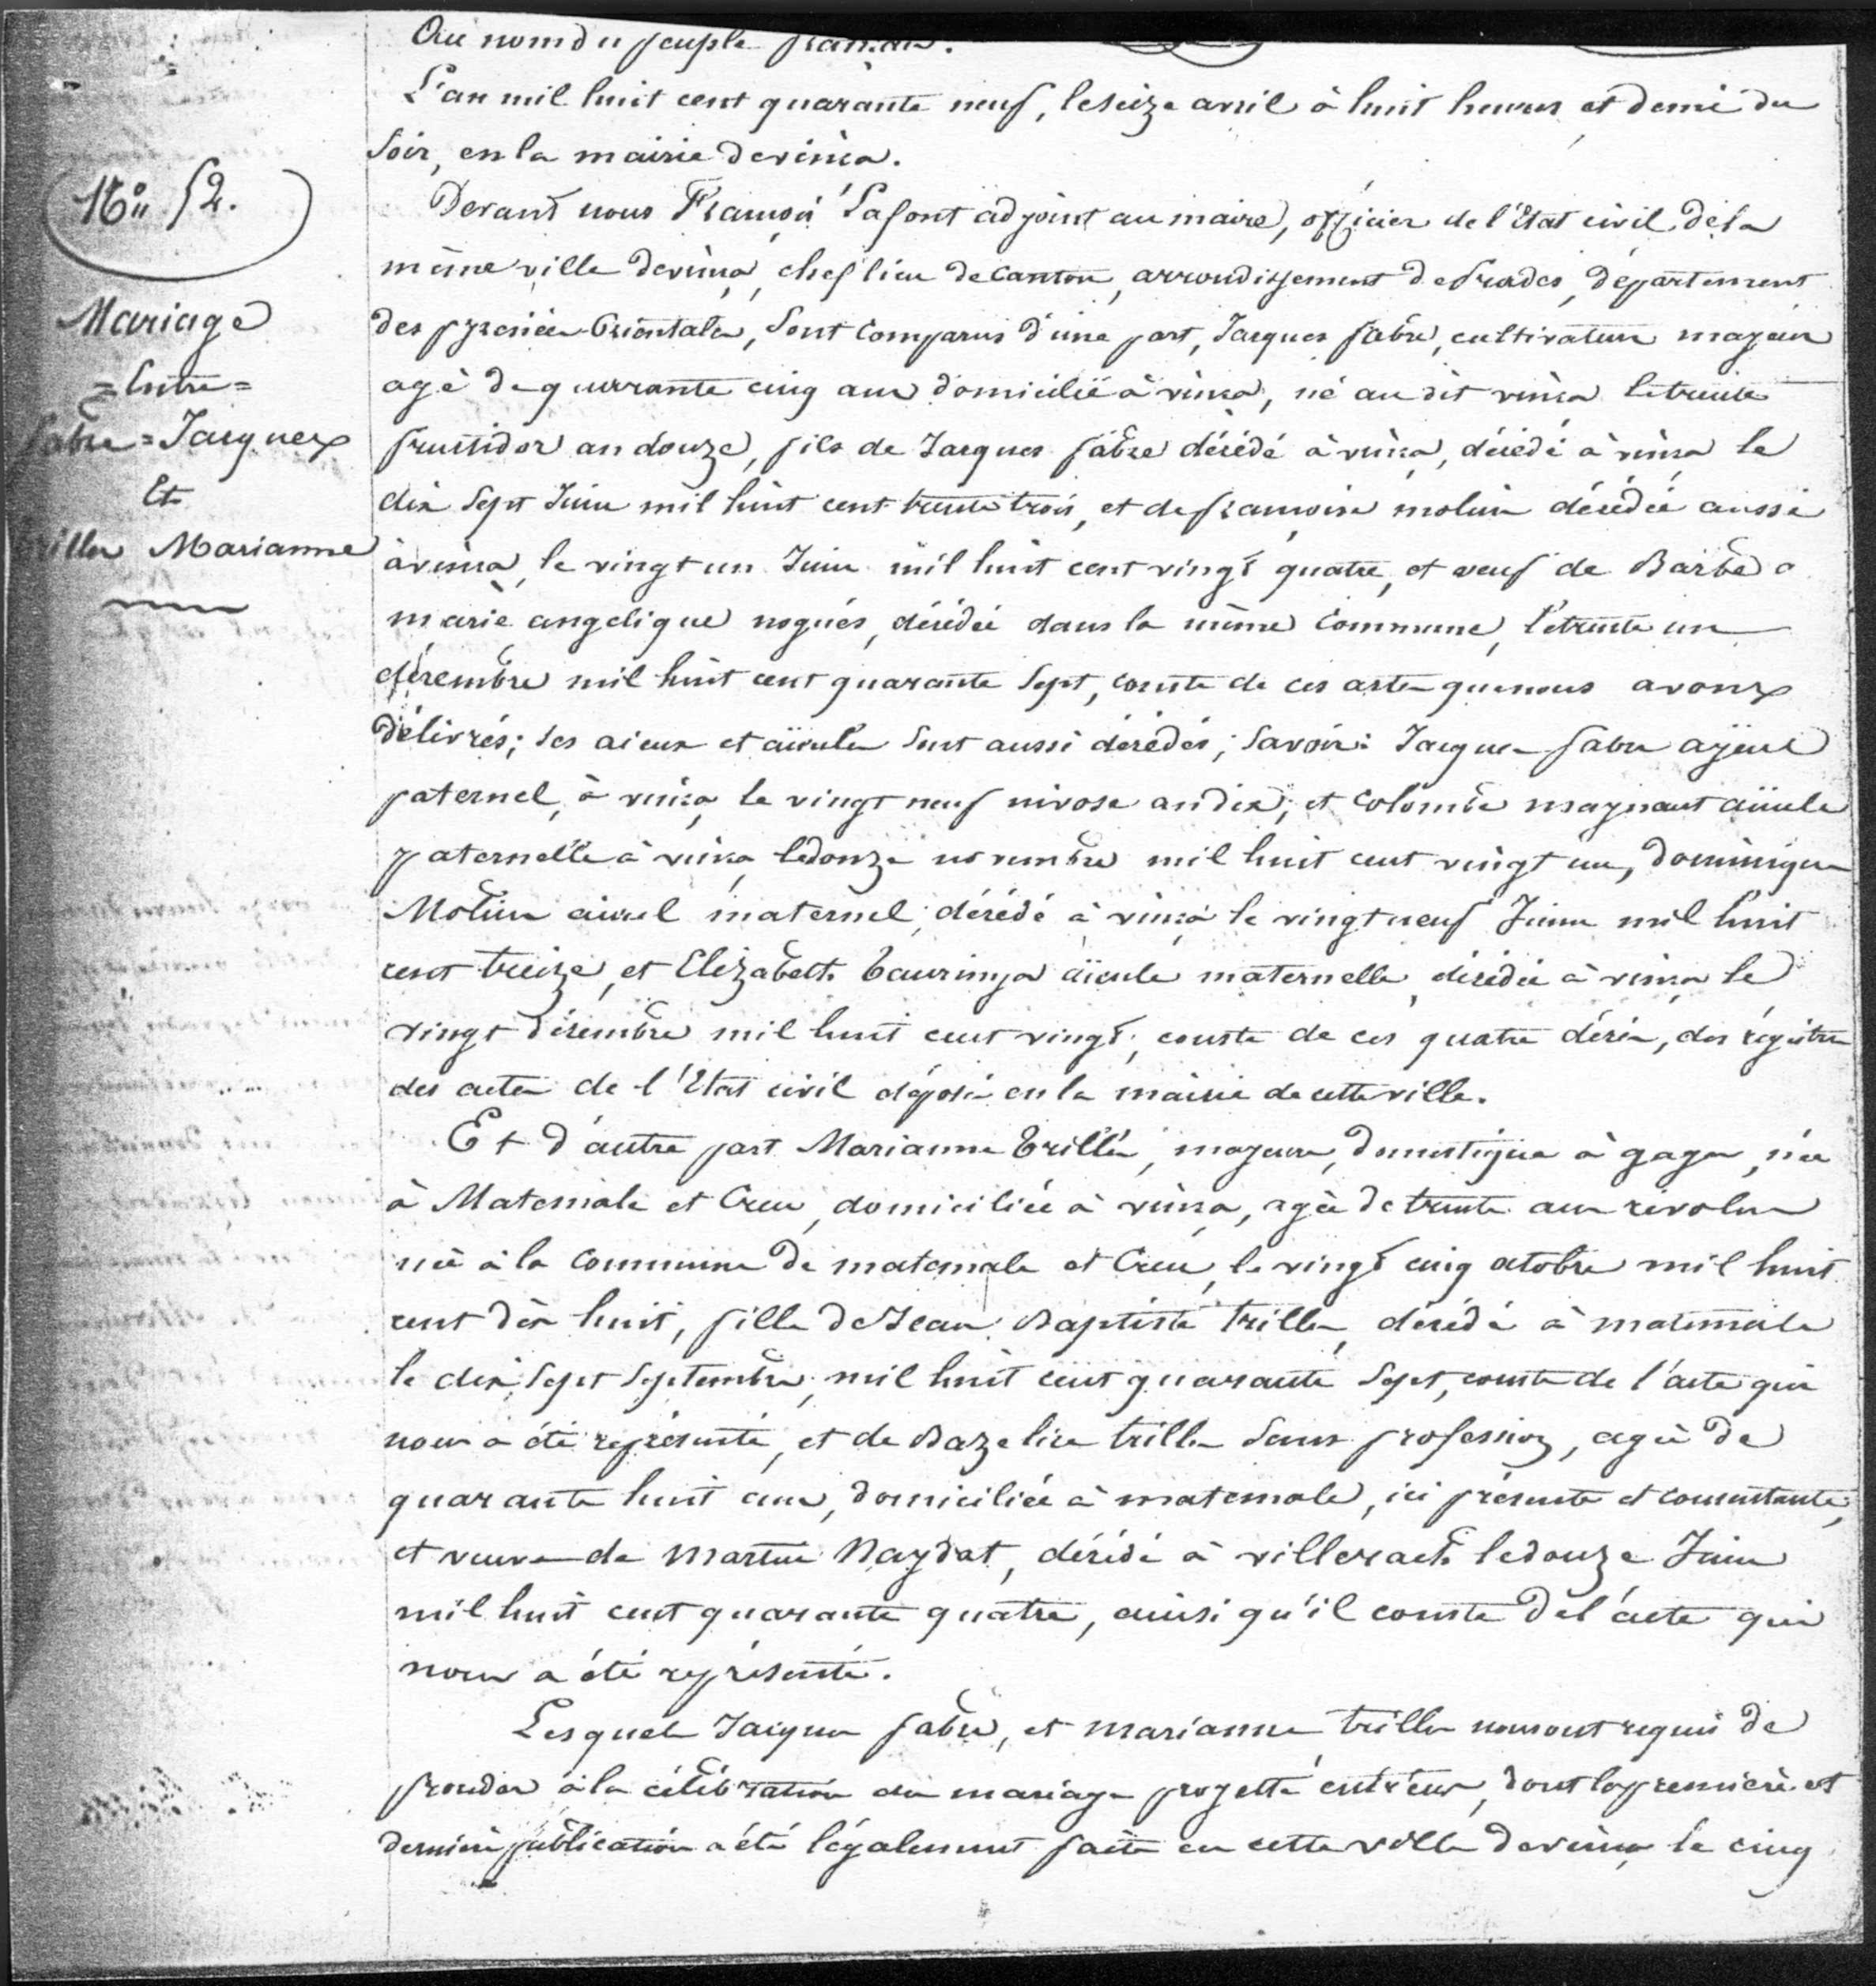 Au nom du peuple français.
L'an mil huit cent quarante neuf, le seize avril à huit heures et demi du
soir, en la mairie de vinça.
N° 52.
Mariage
= Entre =
Fabre = Jacques
Et
Trilles Marianne
Devant nous François Lafont adjoint au maire, officier de l'Etat civil de la
même ville de vinça, chef lieu de Canton, arrondissement de Prades, département
des pyrenées Orientales, sont comparus d'une part, Jacques fabre, cultivateur majeur
agé de quarante cinq ans domicilié à vinça, né au dit vinça le trente
fructidor an douze, fils de Jacques fabre décédé à vinça, décédé à vinça le
dix sept Juin mil huit cent trente trois, et de françoise molins décédée aussi
à vinça, le vingt un Juin mil huit cent vingt quatre, et veuf de Barbe
marie angelique nogués, décédée dans la même Commune, le trente un
décembre mil huit cent quarante sept, conste de ces actes que nous avons
délivrés; ses aieux et aïeules sont aussi décédés; savoir: Jacques fabre ayeul
paternel, à vinça, le vingt neuf nivose an dix, et Colombe maynaut aïeule
paternelle à vinça le douze novembre mil huit cent vingt un, dominique
Molins aieul maternel, décédé à vinça le vingt neuf Juin mil huit
cent treize, et Elizabeth Taurinya aïeule maternelle, décédée à vinça le
vingt décembre mil huit cent vingt, conste de ces quatre décès, des régistres
des actes de l'Etat civil déposés en la mairie de cette ville.
Et d'autre part Marianne Trilles, majeure, domestique à gages, née
à Matemale et Creu, domiciliée à vinça, agée de trente ans révolus
née à la commune de matemale et Creu, le vingt cinq octobre mil huit
cent dix huit, fille de Jean Baptiste trilles, décédé à matemale
le dix sept septembre mil huit cent quarante sept, conste de l'acte qui
nous a été représenté, et de Bazelice trilles sans profession, agée de
quarante huit ans, domiciliée à matemale, ici présente et consentante,
et veuve de Martin Naydat, décédé à villerach le douze Juin
mil huit cent quarante quatre, ainsi qu'il conste de l'acte qui
nous a été représenté.
Lesquels Jacques fabre, et marianne trilles nous ont requis de
proceder à la célébration du mariage projetté entr'eux, dont la premiere et
derniere publication a été légalement faite en cette ville de vinça le cinq